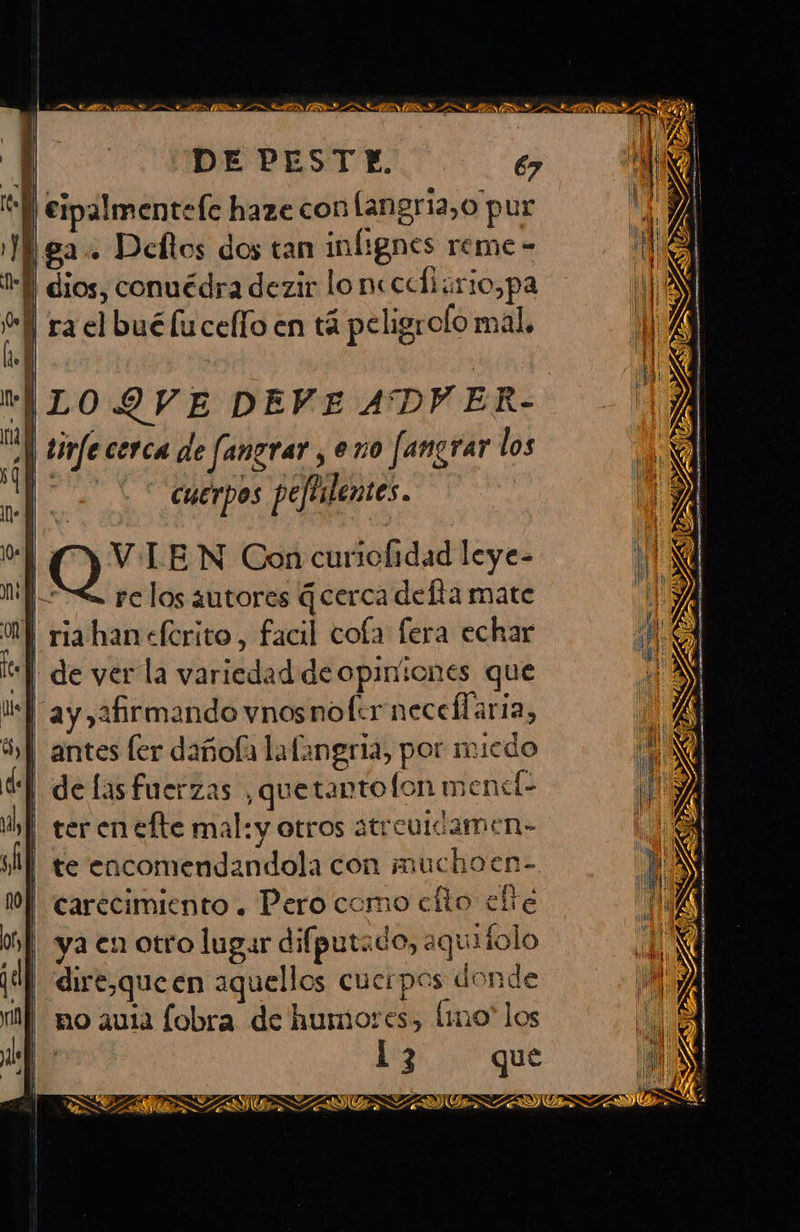 DE PESTE. 67
cipalmente ſe haze con ſangria, o pur
ga. Deſtos dos tan inſignes reme-
dios, conuẽdra dezir lo neceſſario, pa
ra el buẽ ſuceſſo en tã peligroſo mal.
LO QVE DEVE ADVER-
tirſe cerca de ſangrar, o no ſangrar los
cuerpos peſtilentes.
QVIEN Con curioſidad leye-
re los autores q̃ cerca deſta mate
ria han eſcrito, facil coſa ſera echar
de ver la variedad de opiniones que
ay, afirmando vnos no ſer neceſſaria,
antes ſer dañoſa la ſangria, por miedo
de las fuerzas, que tanto ſon meneſ-
ter en eſte mal: y otros atreuidamen-
te encomendandola con mucho en-
carecimiento. Pero como eſto eſte
ya en otro lugar diſputado, aqui ſolo
dire, que en aquellos cuerpos donde
no auia ſobra de humores, ſino los
l3 que